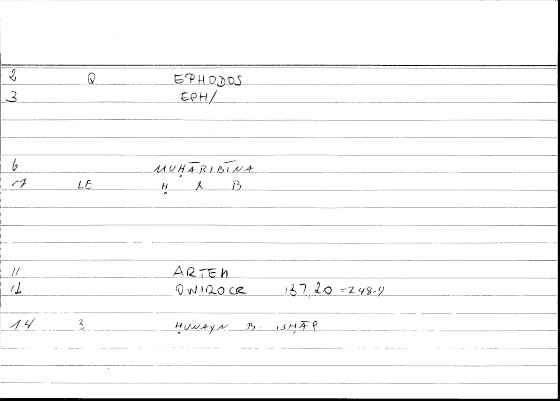 2 Q EPHODOS
3 EPH/
6 MUḤĀRIBĪNA
7 LE Ḥ R B
11 ARTEM
12 ONIROCR 137,20 = 248.9
14 3 ḤUNAYN B. ISḤĀQ